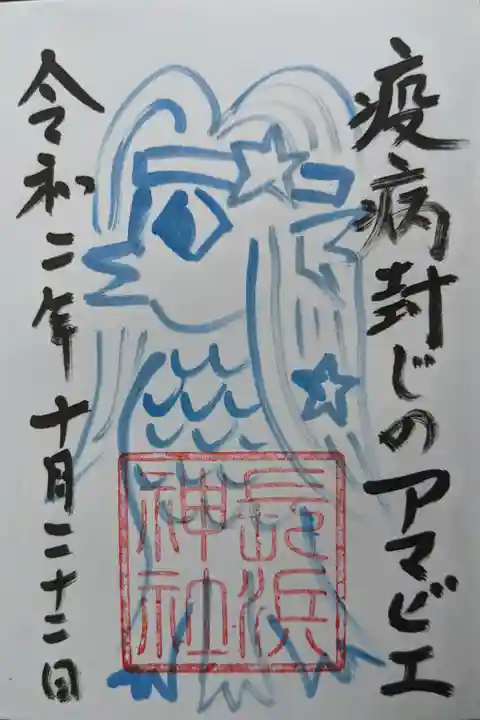 疫病封じのアマビエ
長浜
神社
令和二年十月二十二日